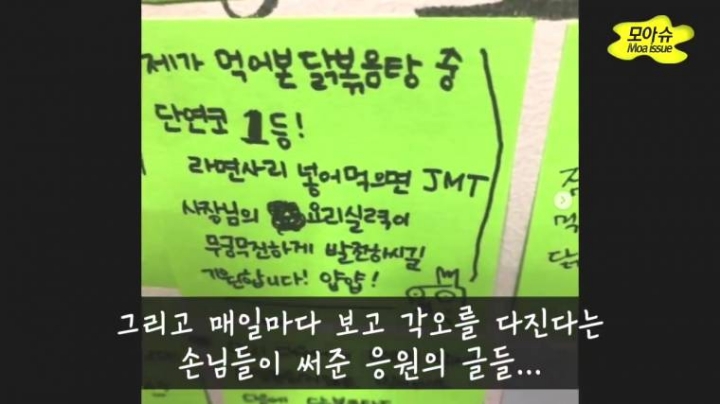 모아슈
Moa issue
제가 먹어본 닭볶음탕 중
단연코 1등!
라면사리 넣어먹으면 JMT
사장님의 요리실력이
무궁무진하게 발전하시길
기원합니다! 얍얍!
그리고 매일마다 보고 각오를 다진다는
손님들이 써준 응원의 글들...